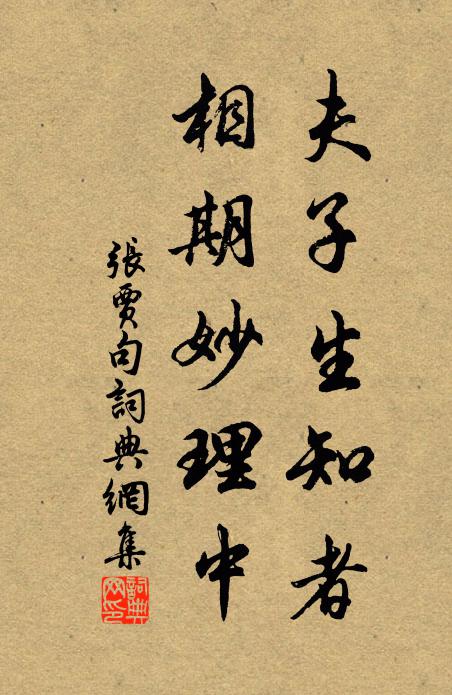 夫子生知者
相期妙理中
張賈句詞典網集
詞典
网印